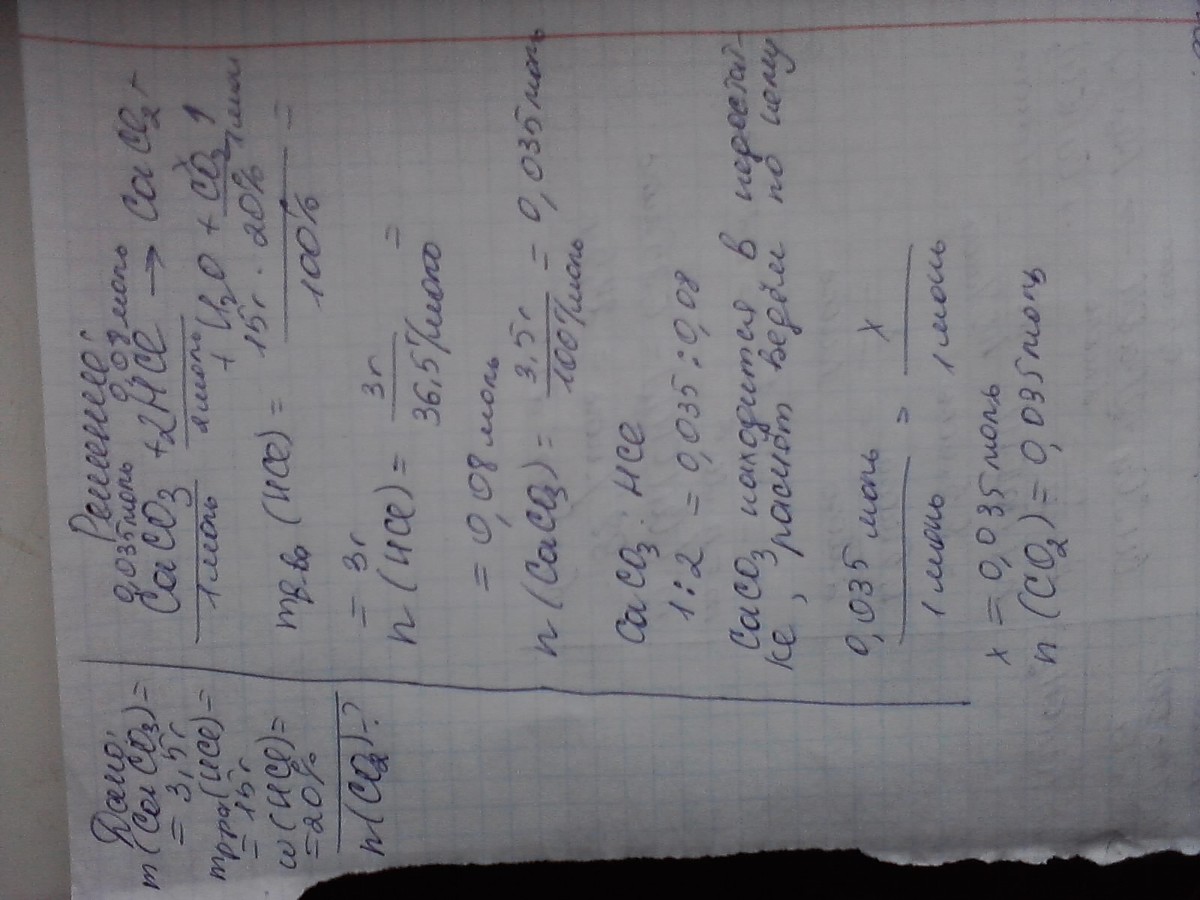 Дано:
m(CaCO3)=
= 3,5г
mр-ра(HCl)=
= 15г
w(HCl)=
=20%
n(CO2)-?
Решение:
0,035моль 0,08моль
CaCO3 + 2HCl → CaCl2 +
1моль 2моль
+ H2O + CO2↑
1моль
mв-ва (HCl) = 15г · 20% / 100% =
= 3г
n(HCl) = 3г / 36,5г/моль =
= 0,08 моль
n(CaCO3) = 3,5г / 100г/моль = 0,035 моль
CaCO3 : HCl
1:2 = 0,035 : 0,08
CaCO3 находится в недостат-
ке, расчёт ведём по нему
0,035 моль / 1 моль = x / 1 моль
x = 0,035 моль
n(CO2) = 0,035 моль